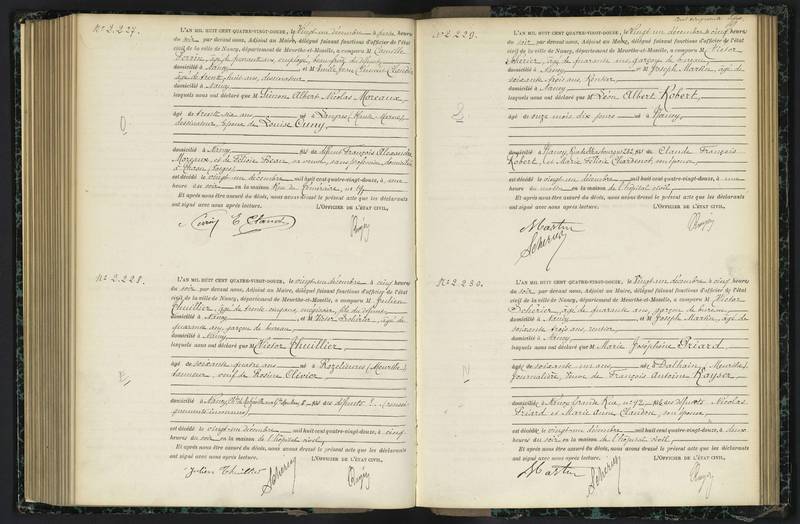 N° 2.227.
L'AN MIL HUIT CENT QUATRE-VINGT-DOUZE, le vingt un décembre à heures
du soir par devant nous, Adjoint au Maire, délégué faisant fonctions d'officier de l'état
civil de la ville de Nancy, département de Meurthe-et-Moselle, a comparu M Camille
âgé de quarante ans, employé, beau-frère du défunt
domicilié à Nancy et M
âgé de trente huit ans, dessinateur
domicilié à Nancy
lesquels nous ont déclaré que M Simon Albert Nicolas Moreaux,
âgé de trente six ans né à Langres (Haute Marne)
dessinateur, époux de Louise Cuny
domicilié à Nancy fils de défunt François Alexandre
Moreaux, et de Félicie sa veuve, sans profession, domiciliée
à (Vosges)
est décédé le vingt un décembre mil huit cent quatre-vingt-douze, à une
heure du soir en la maison Rue du Téméraire, n°
Et après nous être assuré du décès, nous avons dressé le présent acte que les déclarants
ont signé avec nous après lecture. L'OFFICIER DE L'ÉTAT CIVIL,
N° 2.228.
L'AN MIL HUIT CENT QUATRE-VINGT-DOUZE, le vingt un décembre à cinq heures
du soir par devant nous, Adjoint au Maire, délégué faisant fonctions d'officier de l'état
civil de la ville de Nancy, département de Meurthe-et-Moselle, a comparu M Julien
Thuillier, âgé de trente ans, fils du défunt
domicilié à Nancy et M Victor Schérier, âgé de
quarante ans, garçon de bureau
domicilié à Nancy
lesquels nous ont déclaré que M Victor Thuillier
âgé de soixante quatre ans né à Rozelieures (Meurthe)
tanneur, veuf de Rosine Olivier
domicilié à Nancy, fils de défunts
est décédé le vingt un décembre mil huit cent quatre-vingt-douze, à cinq
heures du soir en la maison de l'hôpital civil,
Et après nous être assuré du décès, nous avons dressé le présent acte que les déclarants
ont signé avec nous après lecture. L'OFFICIER DE L'ÉTAT CIVIL,
Julien Thuillier
N° 2.229.
L'AN MIL HUIT CENT QUATRE-VINGT-DOUZE, le vingt un décembre à cinq heures
du soir par devant nous, Adjoint au Maire, délégué faisant fonctions d'officier de l'état
civil de la ville de Nancy, département de Meurthe-et-Moselle, a comparu M Victor
Schérier, âgé de quarante ans, garçon de bureau,
domicilié à Nancy et M Joseph Martin, âgé de
soixante trois ans, rentier
domicilié à Nancy
lesquels nous ont déclaré que M Léon Albert Robert,
âgé de onze mois dix jours né à Nancy,
domicilié à Nancy, Rue de Strasbourg fils de Claude François
Robert, et Marie Félicie Chardenot, son épouse
est décédé le vingt un décembre mil huit cent quatre-vingt-douze, à une
heure du matin en la maison de l'hôpital civil,
Et après nous être assuré du décès, nous avons dressé le présent acte que les déclarants
ont signé avec nous après lecture. L'OFFICIER DE L'ÉTAT CIVIL,
Martin
N° 2.230.
L'AN MIL HUIT CENT QUATRE-VINGT-DOUZE, le vingt un décembre à cinq heures
du soir par devant nous, Adjoint au Maire, délégué faisant fonctions d'officier de l'état
civil de la ville de Nancy, département de Meurthe-et-Moselle, a comparu M Victor
Schérier, âgé de quarante ans, garçon de bureau,
domicilié à Nancy et M Joseph Martin, âgé de
soixante trois ans, rentier,
domicilié à Nancy
lesquels nous ont déclaré que M Marie Joséphine Briard
âgée de soixante un ans née à Dalhain, Meurthe,
journalière, veuve de François Antoine Kayser
domiciliée à Nancy, Grande Rue, n° 72 fille de défunts Nicolas
Briard et Marie Anne Claudon, son épouse
est décédée le vingt un décembre mil huit cent quatre-vingt-douze, à deux
heures du soir en la maison de l'hôpital civil,
Et après nous être assuré du décès, nous avons dressé le présent acte que les déclarants
ont signé avec nous après lecture. L'OFFICIER DE L'ÉTAT CIVIL,
Martin